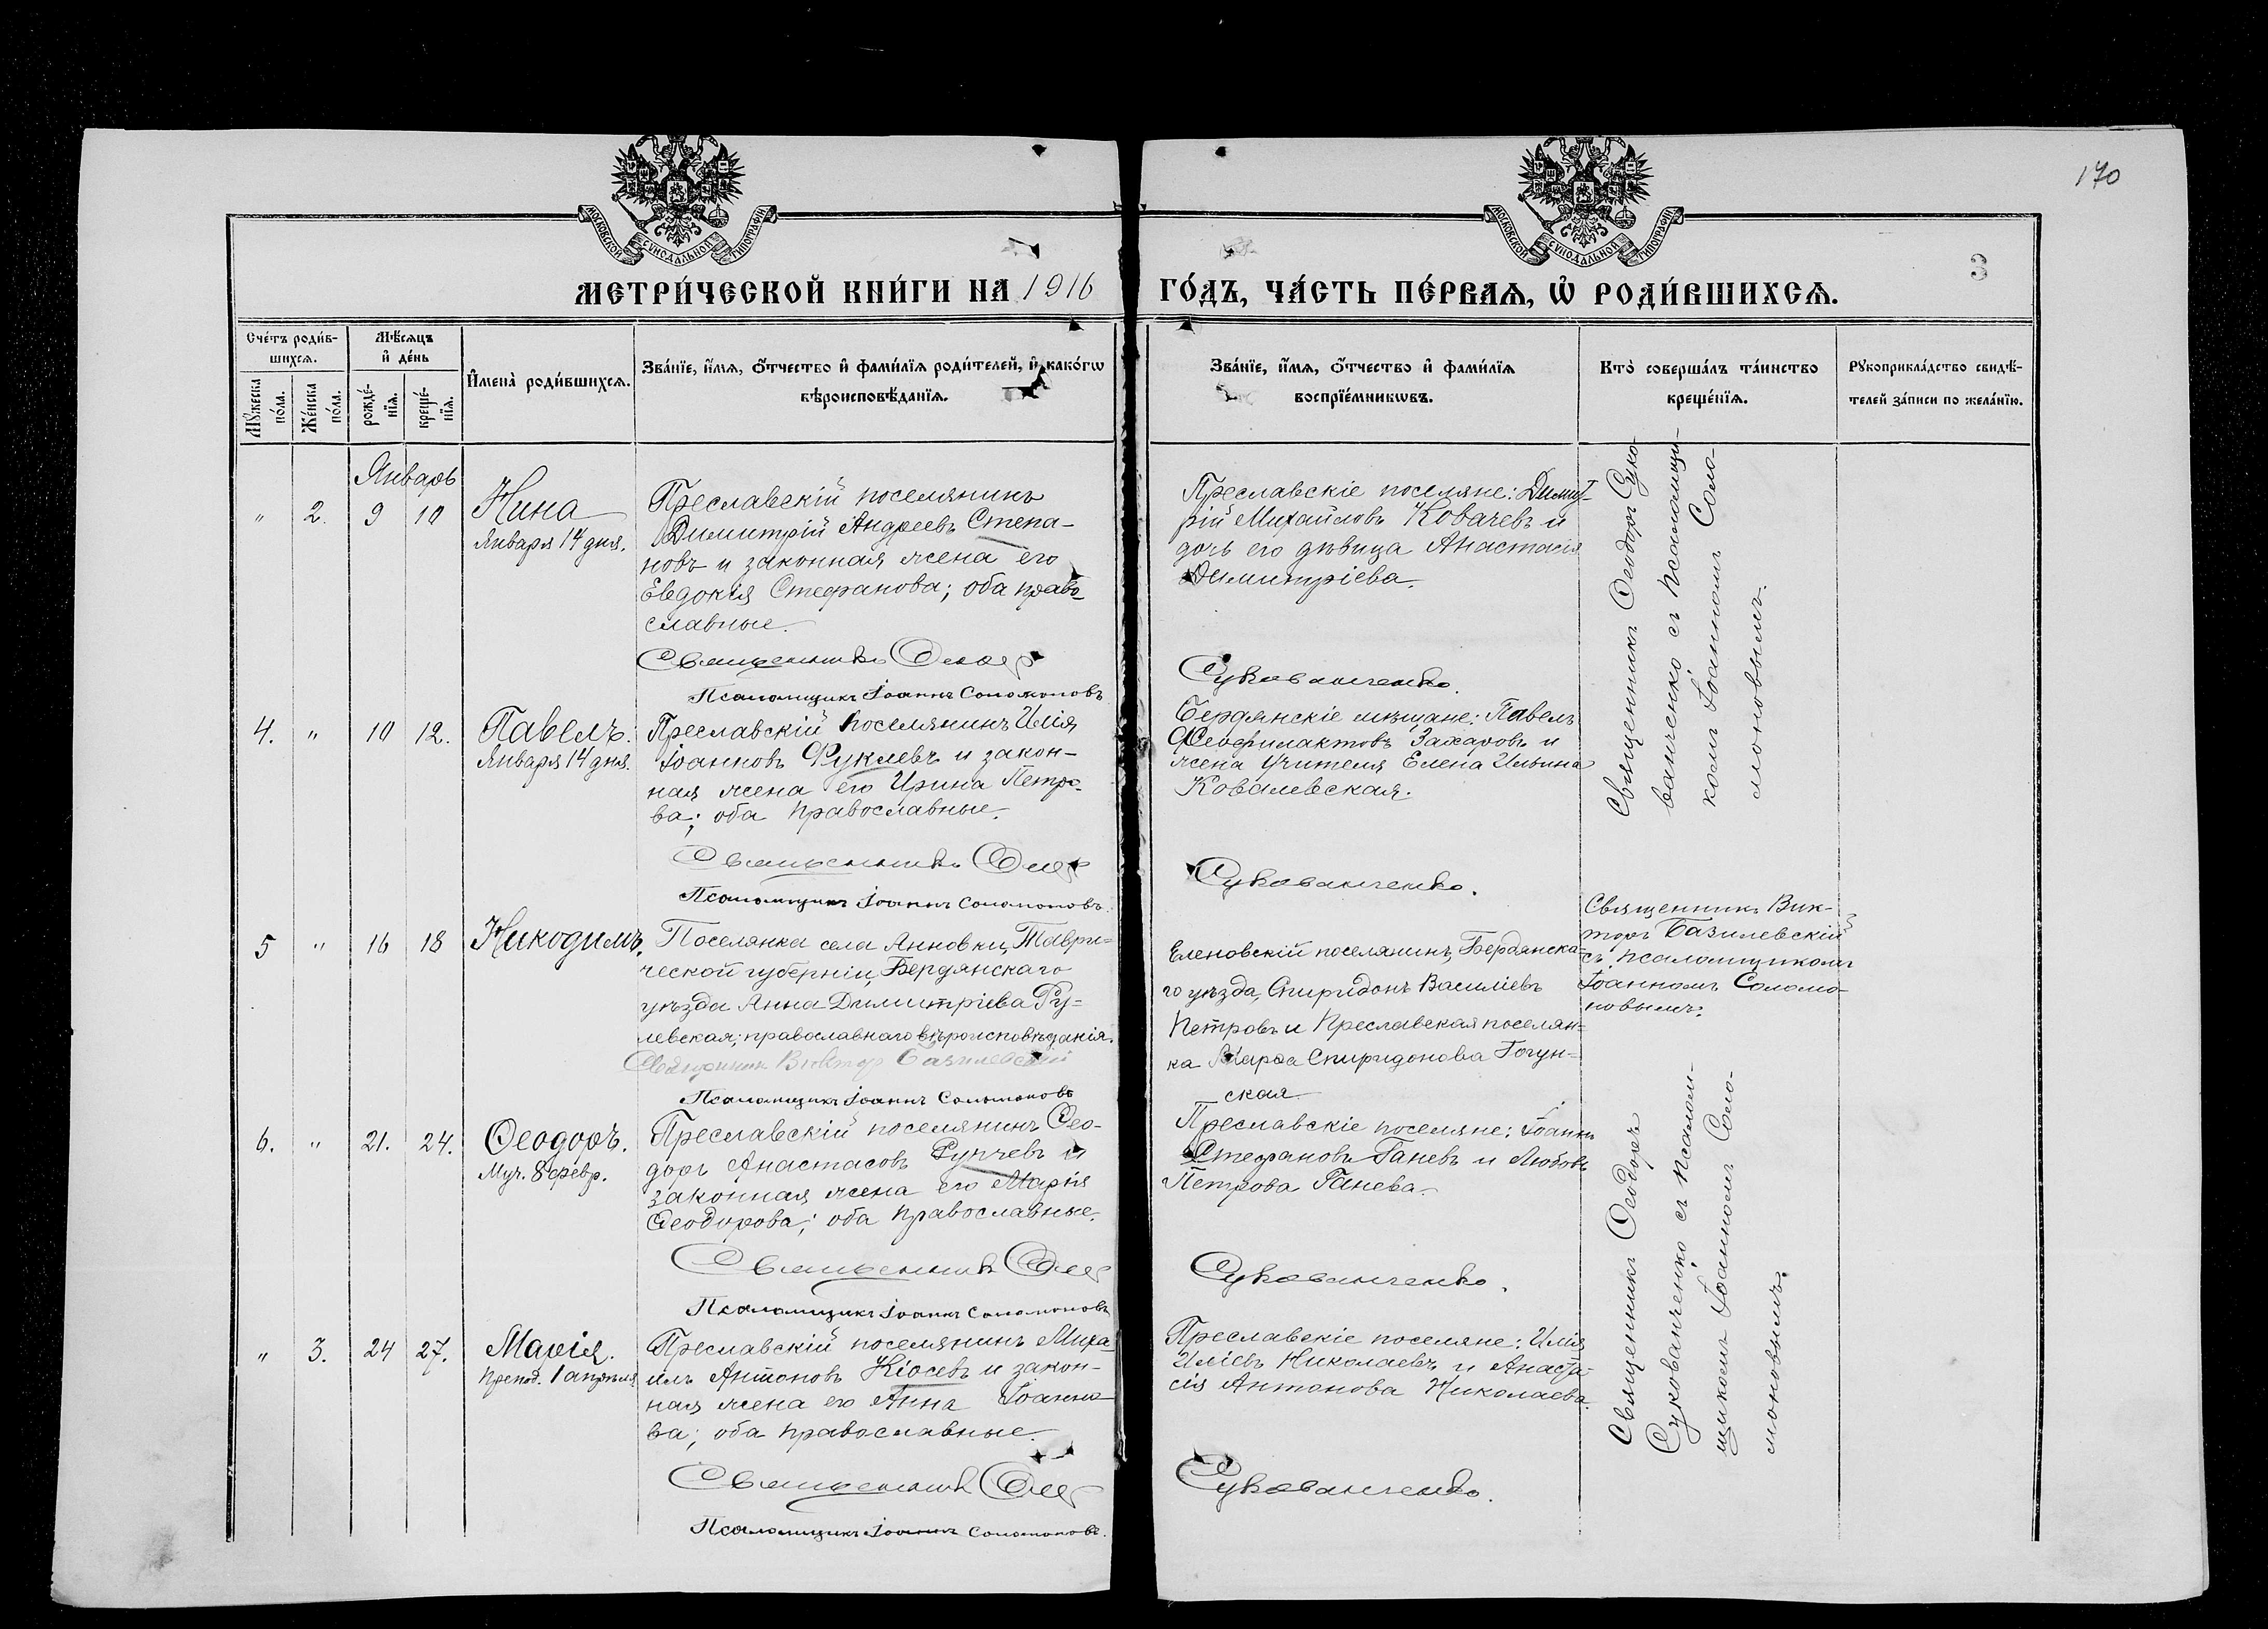 170
МОСКОВСКОЙ СУНОДАЛЬНОЙ ТИПОГРАФІИ
МОСКОВСКОЙ СУНОДАЛЬНОЙ ТИПОГРАФІИ
3
МЕТРИ́ЧЕСКОЙ КНИ́ГИ НА 1916
ГО́ДЪ, ЧА́СТЬ ПЕ́РВАѦ, Ѡ҆ РОДИ́ВШИХСѦ.
Сче́тъ роди́в-
шихсѧ.
Мѣ́сѧцъ
и҆ де́нь
Мꙋ́жеска
по́ла.
Же́нска
по́ла.
рожде́-
нїѧ.
креще́-
нїѧ.
И҆мена̀ роди́вшихсѧ.
Зва́нїе, и҆́мѧ, ѻ҆́тчество и҆ фами́лїѧ роди́телей, и҆ како́гѡ
вѣроисповѣ́данїѧ.
Зва́нїе, и҆́мѧ, ѻ҆́тчество и҆ фами́лїѧ
воспрїе́мникѡвъ.
Кто̀ соверша́лъ та́инство
креще́нїѧ.
Рꙋкоприкла́дство свидѣ́-
телей за́писи по жела́нїю.
Январь
" 2. 9 10
Нина
Января 14 дня.
Преславскій поселянинъ
Димитрій Андреевъ Степа-
новъ и законная жена его
Евдокія Стефанова; оба право-
славные.
Священникъ Ѳеодор
Псаломщикъ Іоаннъ Соломоновъ
Преславскіе поселяне: Димит-
рій Михайловъ Ковачевъ и
дочь его дѣвица Анастасія
Димитріева.
Сукованченко.
Священникъ Ѳеодоръ Суко-
ванченко съ псаломщи-
комъ Іоанномъ Соло-
моновымъ.
4. " 10 12.
Павелъ.
Января 14 дня.
Преславскій поселянинъ Илія
Іоанновъ Фуклевъ и закон-
ная жена его Ирина Петро-
ва; оба православные.
Священникъ Ѳеод
Псаломщикъ Іоаннъ Соломоновъ.
Бердянскіе мѣщане: Павелъ
Ѳеофилактовъ Захаровъ и
жена учителя Елена Ильина
Ковалевская.
Сукованченко.
5 " 16 18
Никодимъ.
Поселянка села Анновки, Таври-
ческой губерніи, Бердянскаго
уѣзда Анна Димитріева Ру-
левская; православнаго вѣроисповѣданія.
Священник Виктор Базилевский
Псаломщикъ Іоаннъ Соломоновъ
Еленовскій поселянинъ, Бердянска-
го уѣзда, Спиридонъ Василіевъ
Петровъ и Преславская поселян-
ка Марѳа Спиридонова Гогун-
ская
Священникъ Вик-
торъ Базилевскій
съ псаломщикомъ
Іоанномъ Соломо-
новымъ.
6. " 21. 24.
Ѳеодоръ.
Муч. 8 февр.
Преславскій поселянинъ Ѳео-
доръ Анастасовъ Рупчевъ и
законная жена его Марія
Ѳеодорова; оба православные.
Священникъ Ѳеод
Псаломщикъ Іоаннъ Соломоновъ
Преславскіе поселяне: Іоаннъ
Стефановъ Ганевъ и Любовь
Петрова Ганева.
Сукованченко.
Священникъ Ѳеодоръ
Сукованченко съ псалом-
щикомъ Іоанномъ Соло-
моновымъ.
" 3. 24 27.
Марія.
Препод. 1 апрѣля
Преславскій поселянинъ Миха-
илъ Антоновъ Кіосевъ и закон-
ная жена его Анна Іоанно-
ва; оба православные.
Священникъ Ѳеод
Псаломщикъ Іоаннъ Соломоновъ.
Преславскіе поселяне: Илія
Иліевъ Николаевъ и Анаста-
сія Антонова Николаева.
Сукованченко.